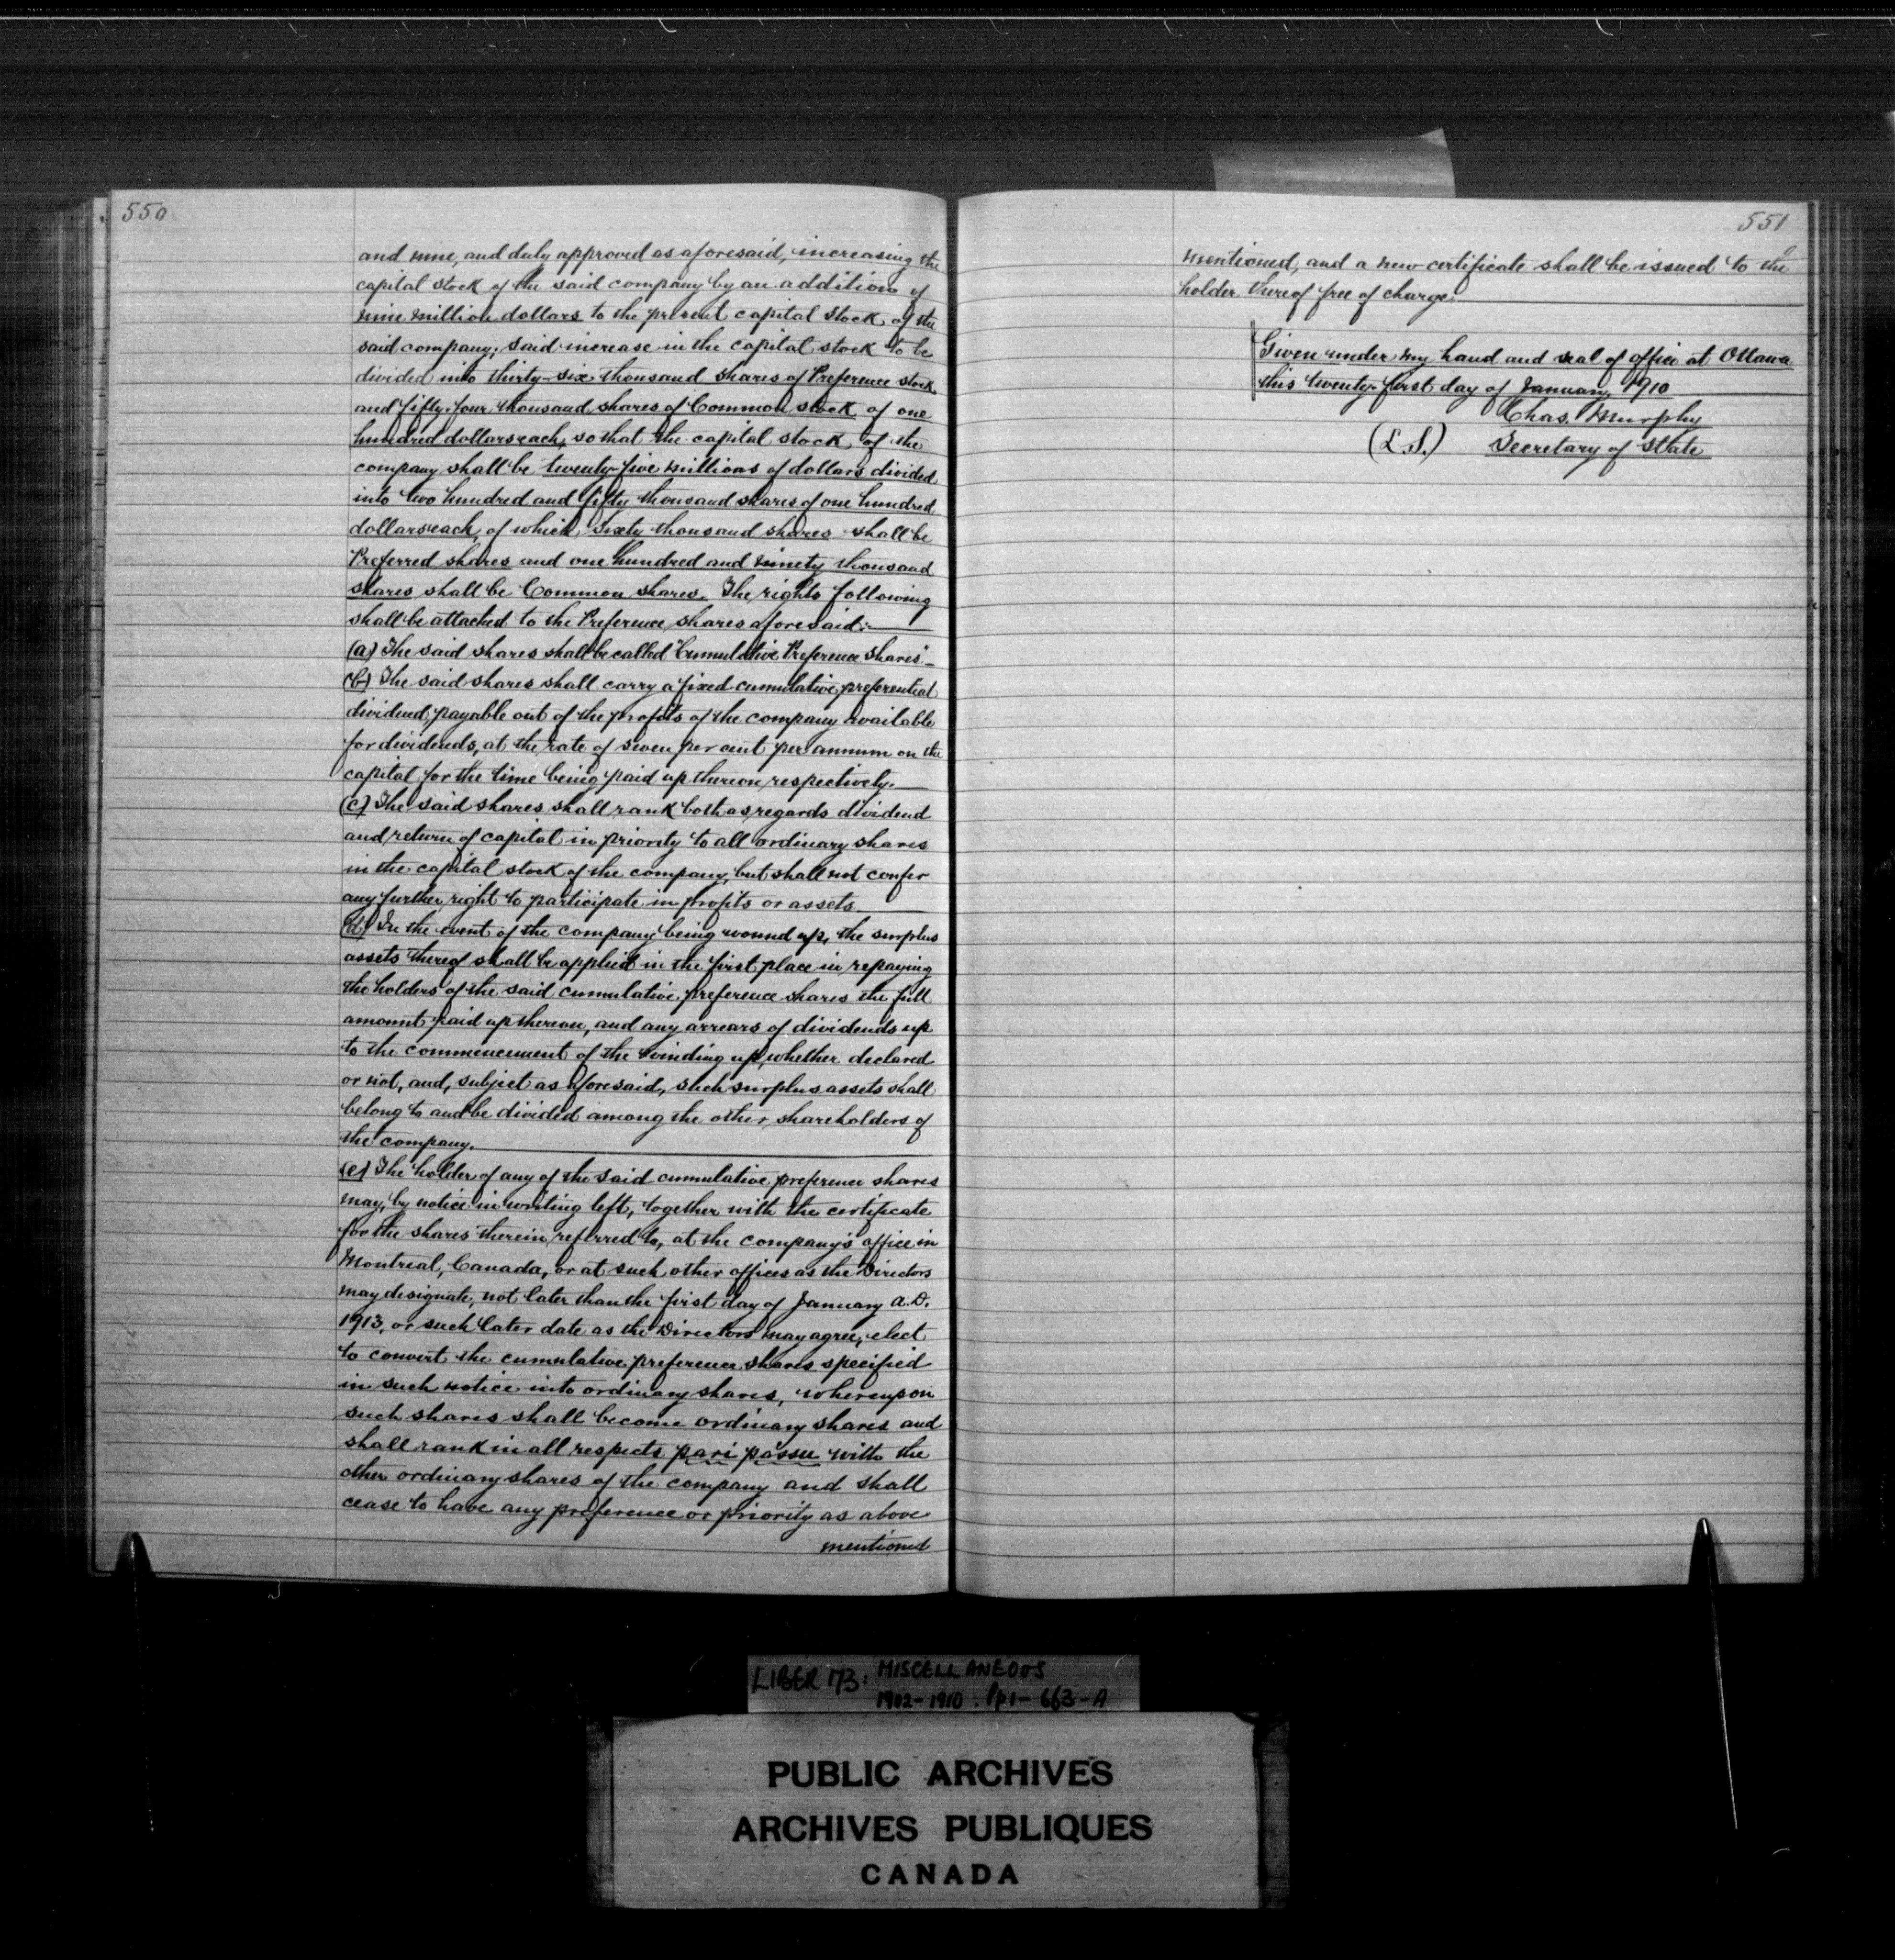 550
and nine, and duly approved as aforesaid, increasing the
capital stock of the said company by an addition of
nine million dollars to the present capital stock of the
said company; said increase in the capital stock to be
divided into thirty-six thousand shares of Preference stock
and fifty-four thousand shares of Common stock of one
hundred dollars each, so that the capital stock of the
company shall be twenty-five millions of dollars divided
into two hundred and fifty thousand shares of one hundred
dollars each, of which sixty thousand shares shall be
Preferred shares and one hundred and ninety thousand
shares shall be Common shares. The rights following
shall be attached to the Preference shares aforesaid:—
(a) The said shares shall be called "Cumulative Preference Shares"—
(b) The said shares shall carry a fixed cumulative preferential
dividend payable out of the profits of the company available
for dividends, at the rate of seven per cent per annum on the
capital for the time being paid up thereon respectively.—
(c) The said shares shall rank both as regards dividend
and return of capital in priority to all ordinary shares
in the capital stock of the company, but shall not confer
any further right to participate in profits or assets—
(d) In the event of the company being wound up, the surplus
assets thereof shall be applied in the first place in repaying
the holders of the said cumulative preference shares the full
amount paid up thereon, and any arrears of dividends up
to the commencement of the winding up, whether declared
or not, and, subject as aforesaid, such surplus assets shall
belong to and be divided among the other shareholders of
the company.
(e) The holder of any of the said cumulative preference shares
may, by notice in writing left, together with the certificate
for the shares therein referred to, at the company's office in
Montreal, Canada, or at such other offices as the Directors
may designate, not later than the first day of January A.D.
1913, or such later date as the Directors may agree, elect
to convert the cumulative preference shares specified
in such notice into ordinary shares, whereupon
such shares shall become ordinary shares and
shall rank in all respects pari passu with the
other ordinary shares of the company and shall
cease to have any preference or priority as above
mentioned
551
mentioned, and a new certificate shall be issued to the
holder thereof free of charge.
Given under my hand and seal of office at Ottawa
this twenty-first day of January, 1910
Chas. Murphy
(L.S.) Secretary of State
LIBER 173: MISCELLANEOUS
1902-1910. Pp1-663-A
PUBLIC ARCHIVES
ARCHIVES PUBLIQUES
CANADA